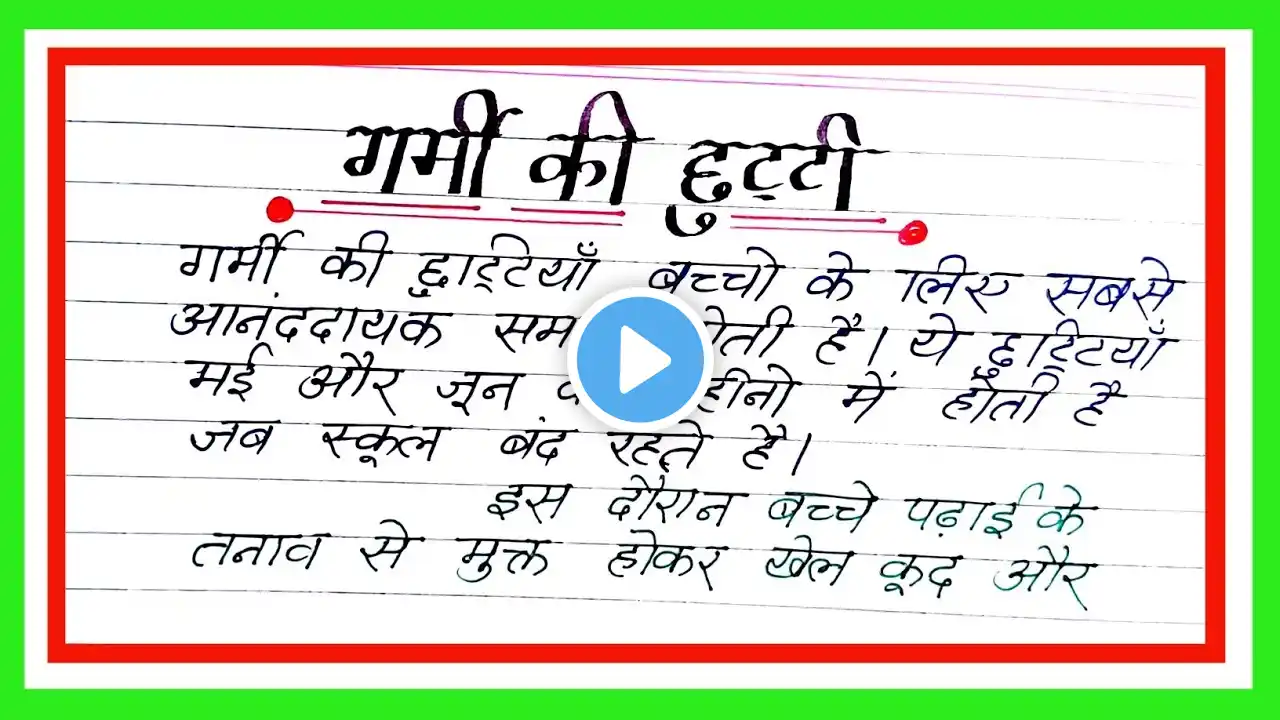 गर्मी की छुट्टी
गर्मी की छुट्टियाँ बच्चो के लिए सबसे
आनंददायक होती है। ये छुट्टियाँ
मई और जून में होती है
जब स्कूल बंद रहते है।
इस दौरान बच्चे पढ़ाई के
तनाव से मुक्त होकर खेल कूद और